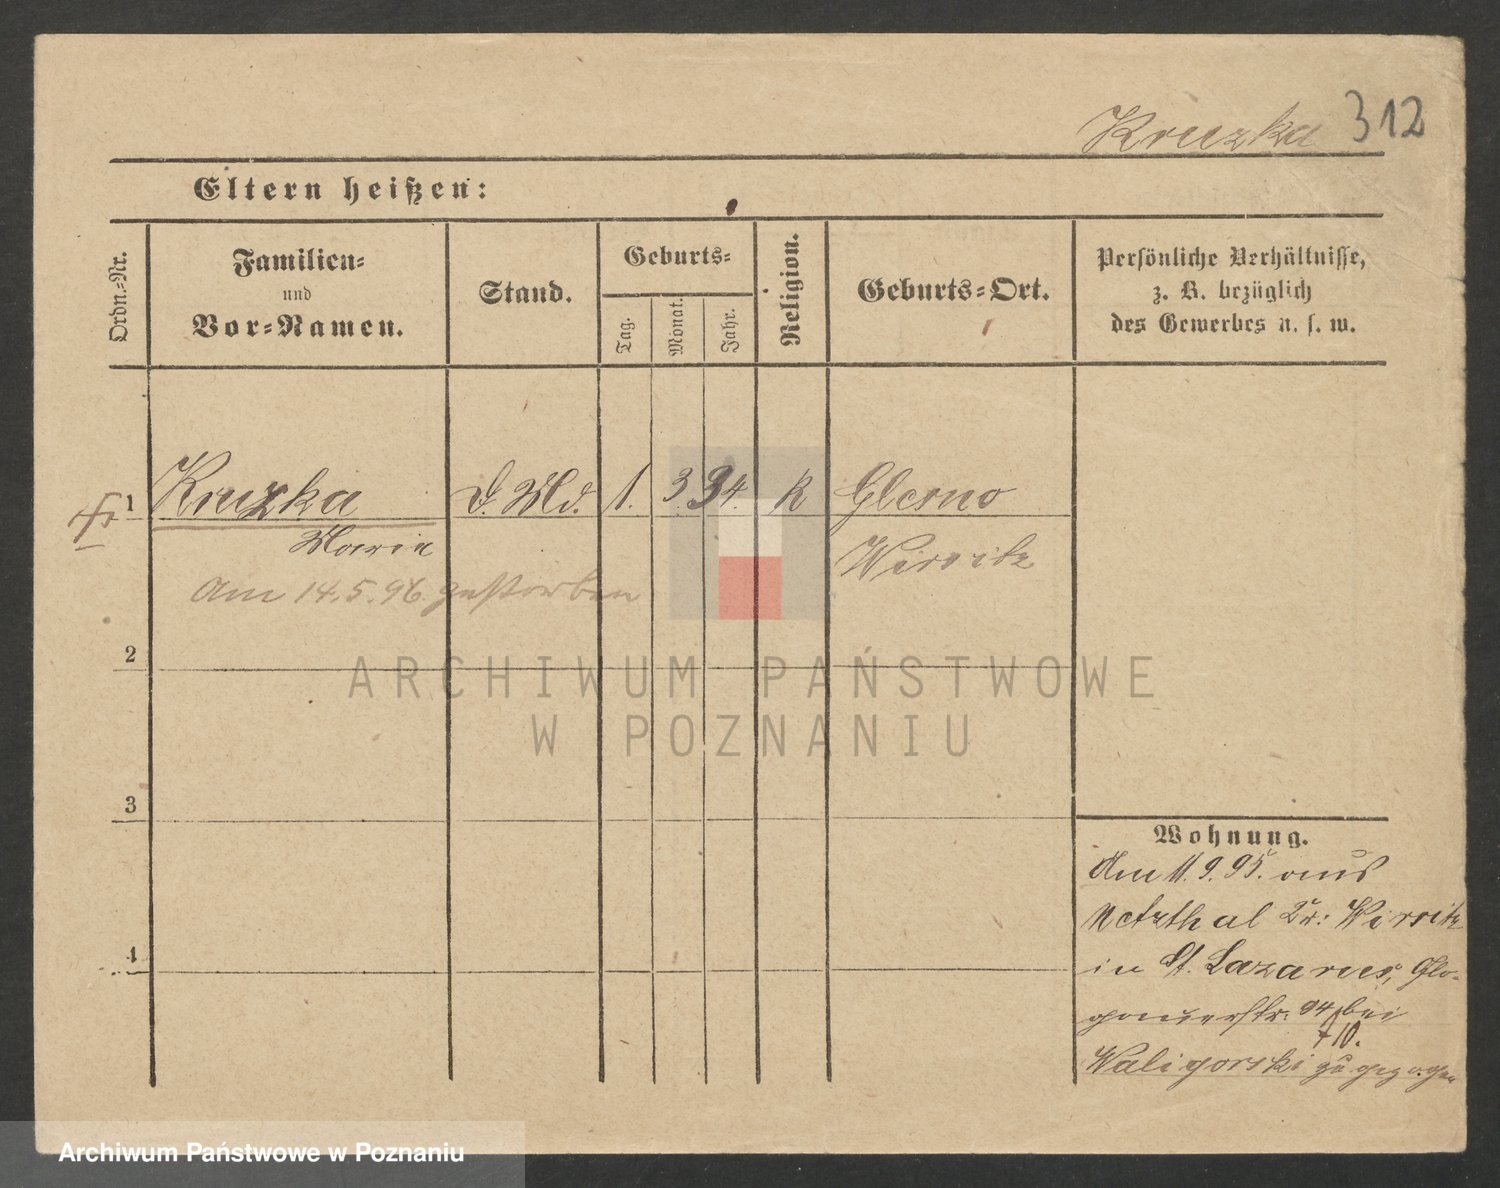 Kruzka 312
Eltern heißen:
Ordn.-Nr.
Familien-
und
Vor-Namen.
Stand.
Geburts-
Tag.
Monat.
Jahr.
Religion.
Geburts-Ort.
Persönliche Verhältnisse,
z. B. bezüglich
des Gewerbes u. s. w.
1 Kruzka D. Md. 1. 3. 34. k Glesno
Maria Wirsitz
Am 14.5.96. gestorben
2
3
4
Wohnung.
Am 11.9.95. aus
Netzthal Kr: Wirsitz
in St. Lazarus, Glo-
gauerstr. 94 bei
Waligorski zugezogen
ARCHIWUM PAŃSTWOWE
W POZNANIU
Archiwum Państwowe w Poznaniu